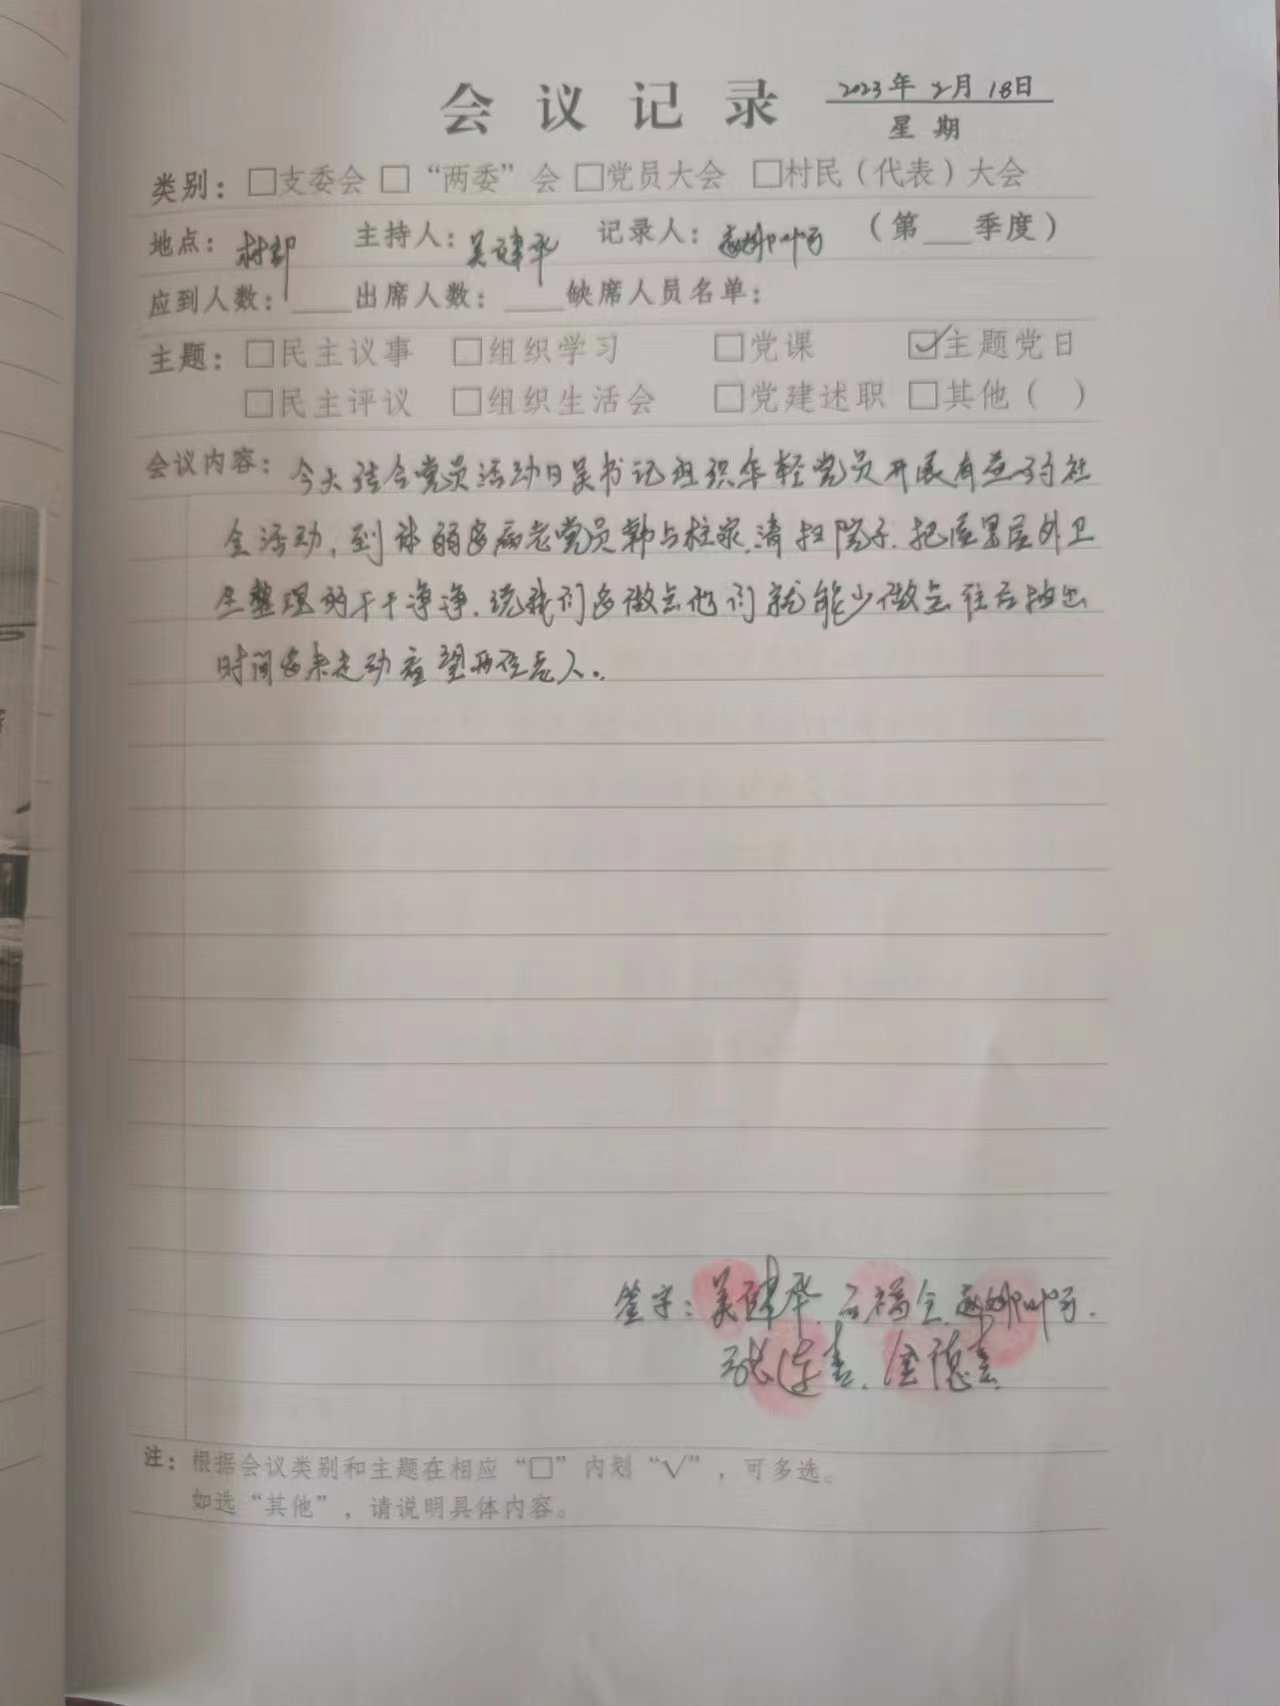 会议记录 2023年2月18日
星期
类别：□支委会 □“两委”会 □党员大会 □村民（代表）大会
地点：村部 主持人：吴建华 记录人： （第___季度）
应到人数：____出席人数：____缺席人员名单：
主题：□民主议事 □组织学习 □党课 ☑主题党日
□民主评议 □组织生活会 □党建述职 □其他（ ）
会议内容：今天结合党员活动日吴书记组织年轻党员开展有益的社
会活动，到体弱多病老党员韩占柱家，清扫院子，把屋里屋外卫
生整理的干干净净，说我们多做点他们就能少做点往后抽出
时间多来走动看望两位老人。
签字：吴建华、石福全、
张连吉、金德吉
注：根据会议类别和主题在相应“□”内划“√”，可多选。
如选“其他”，请说明具体内容。